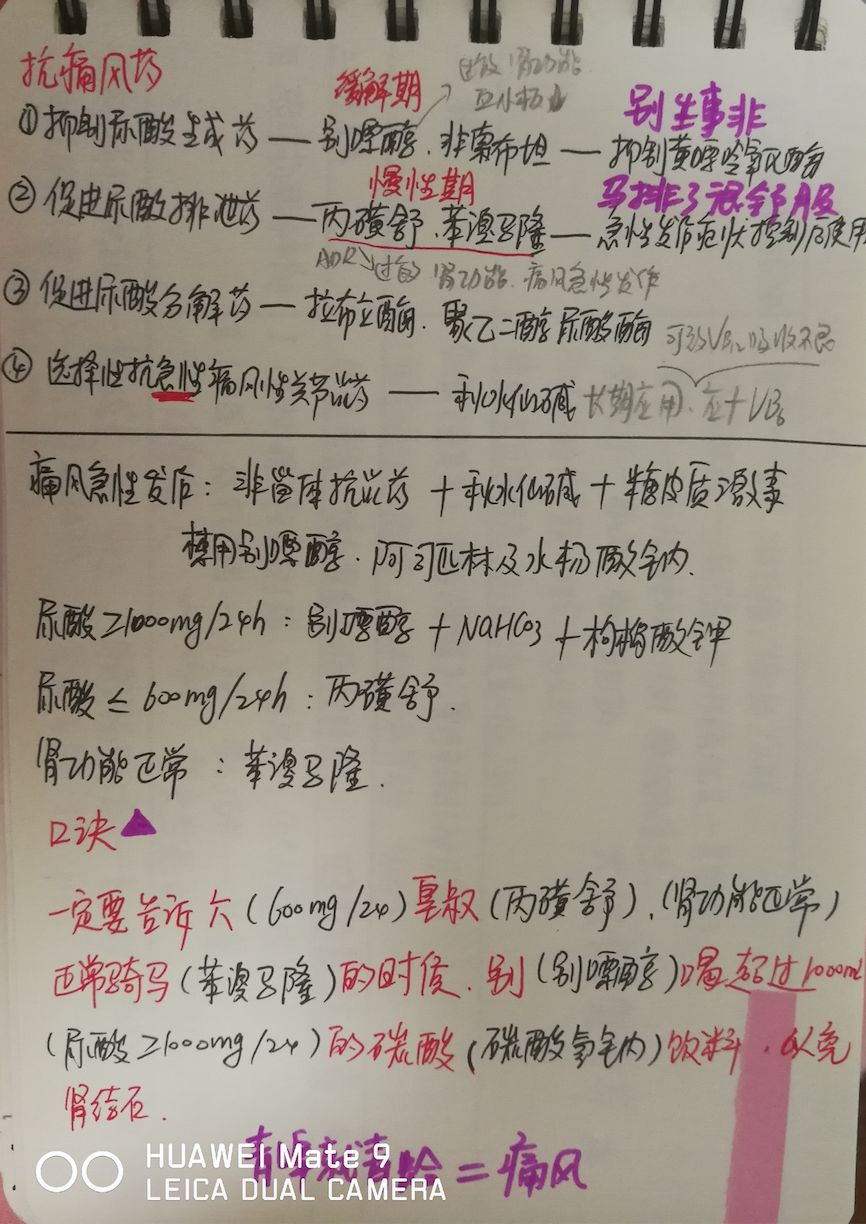 抗痛风药
缓解期
过敏 肾功能
别生事非
①抑制尿酸生成药 — 别嘌醇、非索布坦 — 抑制黄嘌呤氧化酶
慢性期
马排了很舒服
②促进尿酸排泄药 — 丙磺舒、苯溴马隆 — 急性发作症状控制后使用
ADR 过敏 肾功能、痛风急性发作
③促进尿酸分解药 — 拉布立酶、聚乙二醇尿酸酶
可致VB12吸收不良
④选择性抗急性痛风性关节炎药 — 秋水仙碱 长期应用、应+VB6
痛风急性发作：非甾体抗炎药+秋水仙碱+糖皮质激素
禁用别嘌醇、阿司匹林及水杨酸钠.
尿酸≥1000mg/24h：别嘌醇+NaHCO3+枸橼酸钾
尿酸≤600mg/24h：丙磺舒.
肾功能正常：苯溴马隆.
口诀
一定要告诉六(600mg/24)皇叔(丙磺舒)、(肾功能正常)
正常骑马(苯溴马隆)的时候、别(别嘌醇)喝超过1000ml
(尿酸≥1000mg/24)的碳酸(碳酸氢钠)饮料、以免
肾结石.
=痛风
HUAWEI Mate 9
LEICA DUAL CAMERA